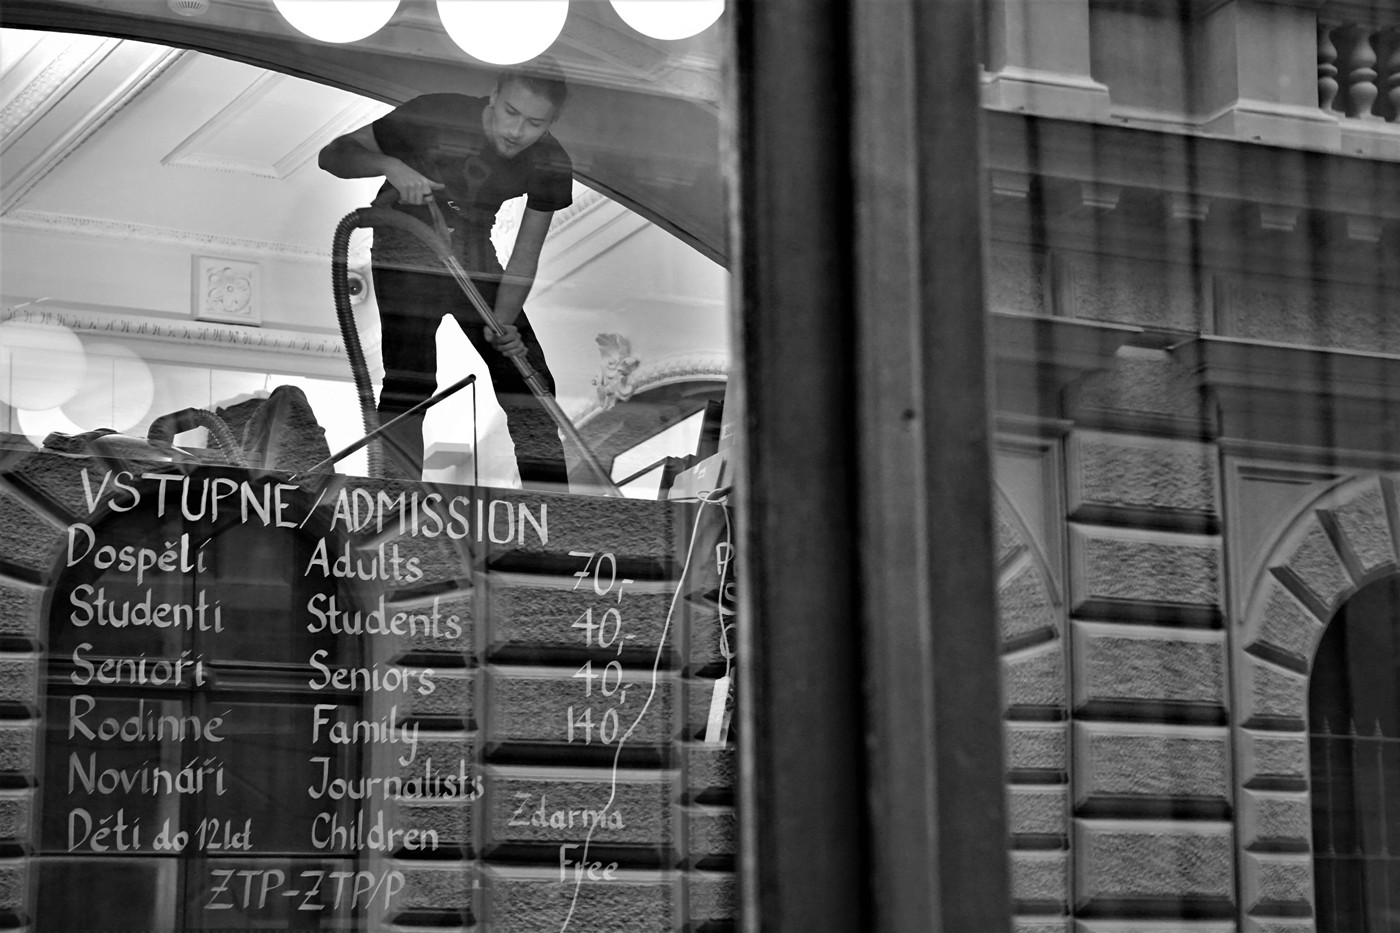 VSTUPNÉ/ADMISSION
Dospělí Adults 70,-
Studenti Students 40,-
Senioři Seniors 40,-
Rodinné Family 140,-
Novináři Journalists
Zdarma
Děti do 12let Children
Free
ZTP-ZTP/P